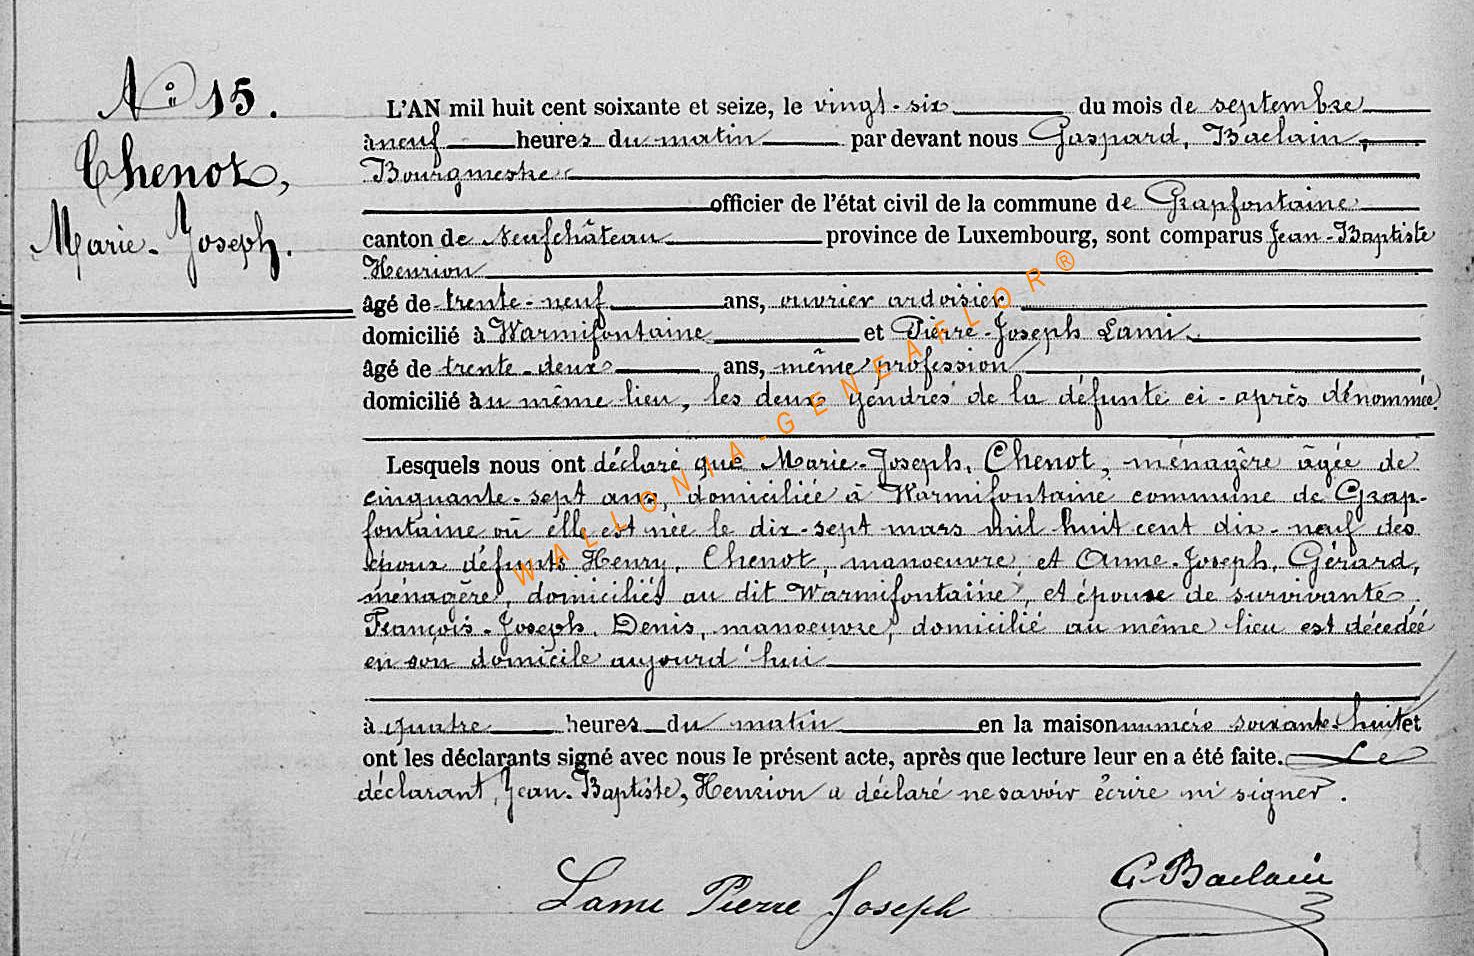 No 15.
Chenot,
Marie-Joseph.
L'AN mil huit cent soixante et seize, le vingt-six du mois de septembre
à neuf heures du matin par devant nous Gaspard, Baclain,
Bourgmestre
officier de l'état civil de la commune de Grapfontaine
canton de Neufchâteau province de Luxembourg, sont comparus Jean-Baptiste
Henrion
âgé de trente-neuf ans, ouvrier ardoisier
domicilié à Warmifontaine et Pierre-Joseph Lami
âgé de trente-deux ans, même profession
domicilié au même lieu, les deux gendres de la défunte ci-après dénommée.
Lesquels nous ont déclaré que Marie-Joseph, Chenot, ménagère âgée de
cinquante-sept ans, domiciliée à Warmifontaine commune de Grap-
fontaine où elle est née le dix-sept mars mil huit cent dix-neuf des
époux défunts Henry, Chenot, manoeuvre, et Anne-Joseph, Gérard,
ménagère, domiciliés au dit Warmifontaine, et épouse de survivante
François-Joseph, Denis, manoeuvre, domicilié au même lieu est décédée
en son domicile aujourd'hui
à quatre heures du matin en la maison numéro soixante-huit et
ont les déclarants signé avec nous le présent acte, après que lecture leur en a été faite. Le
déclarant, Jean-Baptiste, Henrion a déclaré ne savoir écrire ni signer.
Lami Pierre Joseph
G. Baclain
WALLONIA-GENEAFLOR®